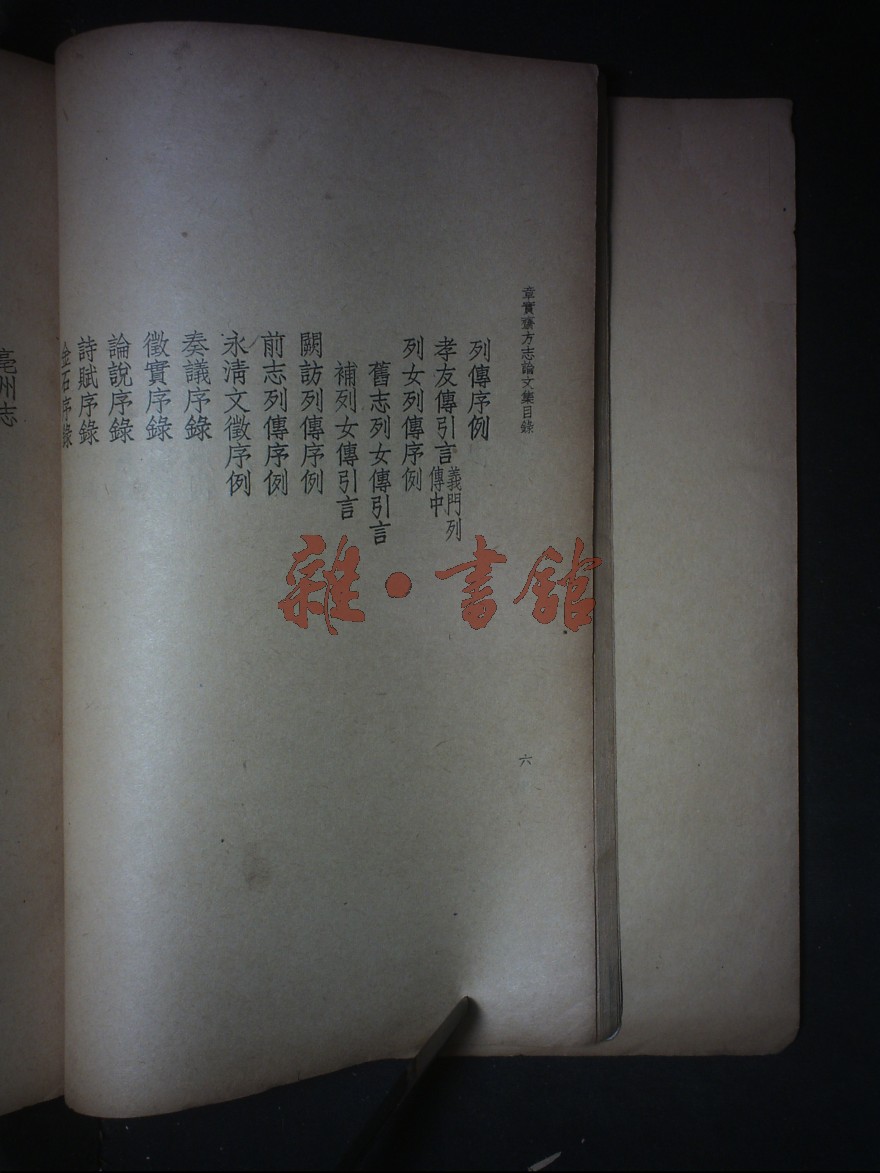 章實齋方志論文集目錄
六
列傳序例
孝友傳引言 義門列傳中
列女列傳序例
舊志列女傳引言
補列女傳引言
闕訪列傳序例
前志列傳序例
永清文徵序例
奏議序錄
徵實序錄
論說序錄
詩賦序錄
金石序錄
亳州志
雜·書館